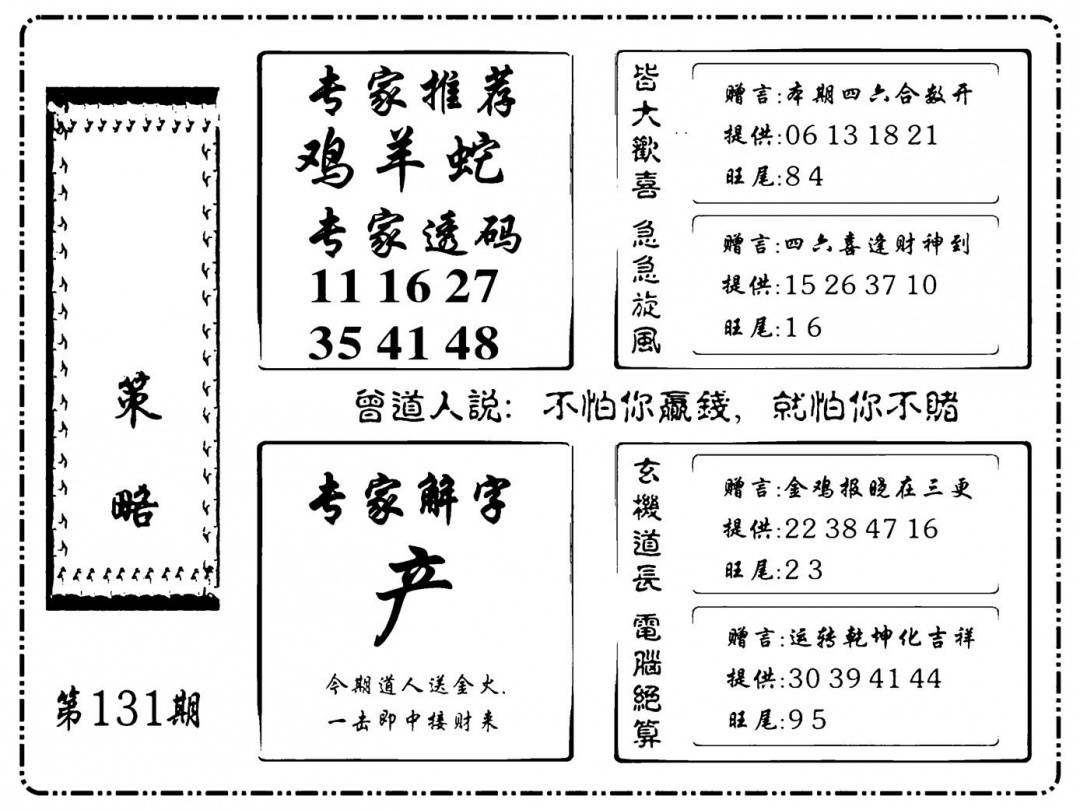 策略
第131期
专家推荐
鸡羊蛇
专家透码
11 16 27
35 41 48
皆大歡喜
赠言:本期四六合数开
提供:06 13 18 21
旺尾:8 4
急急旋風
赠言:四六喜逢财神到
提供:15 26 37 10
旺尾:1 6
曾道人説: 不怕你贏錢, 就怕你不賭
专家解字
产
今期道人送金火.
一击即中接财来
玄機道長
赠言:金鸡报晓在三更
提供:22 38 47 16
旺尾:2 3
電腦絕算
赠言:运转乾坤化吉祥
提供:30 39 41 44
旺尾:9 5